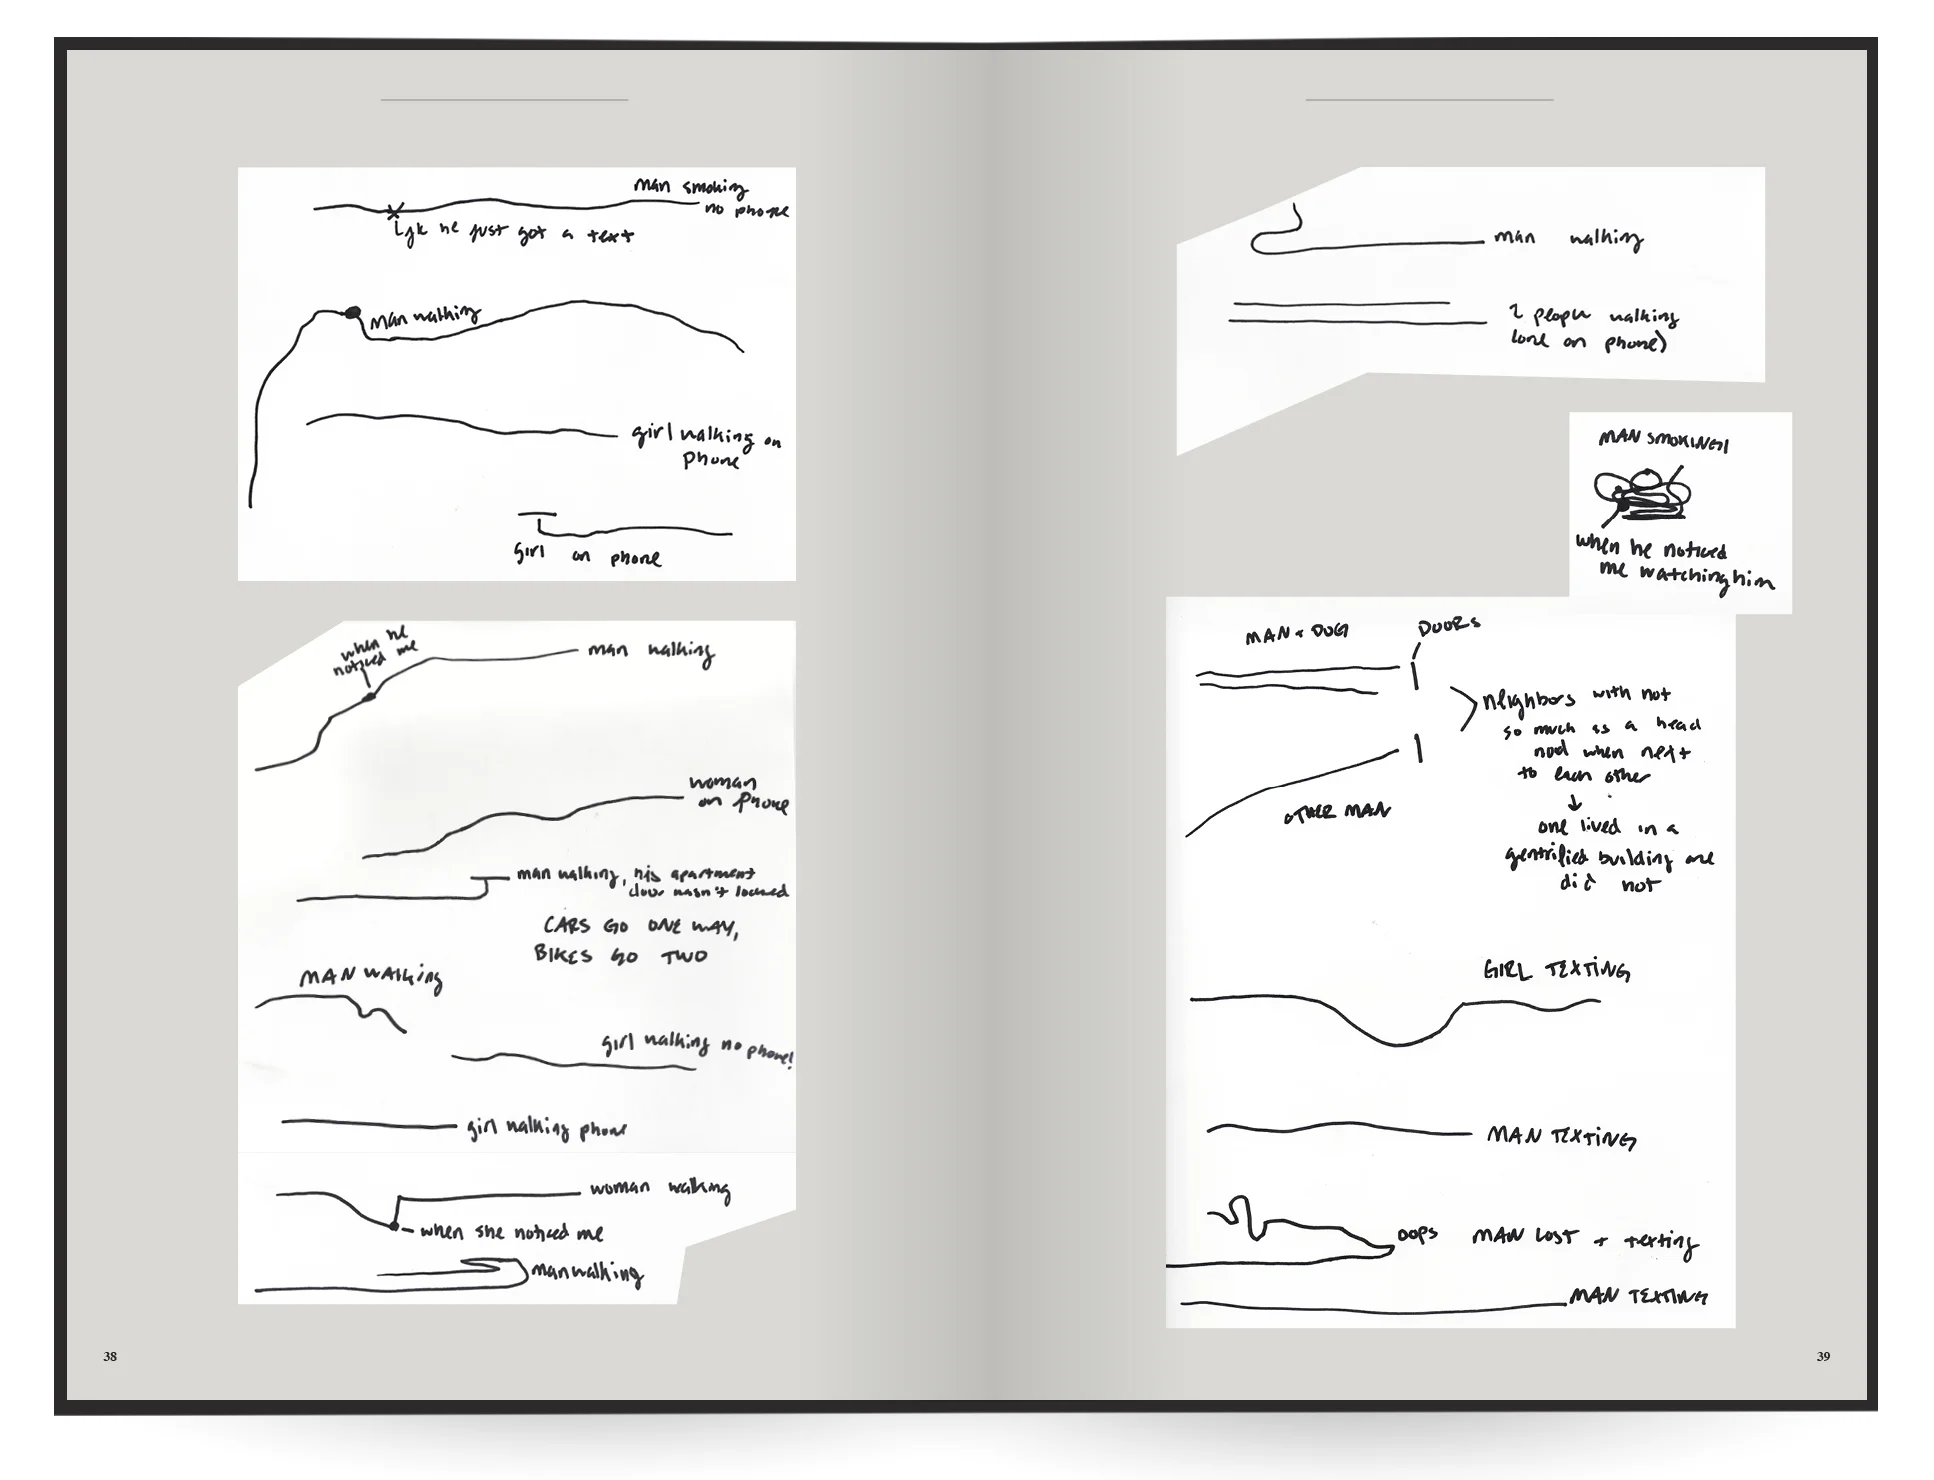 man smoking
no phone
he just got a text
man walking
girl walking on
phone
girl on phone
when he
noticed me
man walking
woman
on phone
man walking, his apartment
door wasn't locked
CARS GO ONE WAY,
BIKES GO TWO
MAN WALKING
girl walking no phone!
girl walking phone
woman walking
when she noticed me
man walking
38
man walking
2 people walking
(one on phone)
MAN SMOKING
when he noticed
me watching him
MAN + DOG
DOORS
neighbors with not
so much as a head
nod when next
to each other
↓
one lived in a
gentrified building one
did not
OTHER MAN
GIRL TEXTING
MAN TEXTING
OOPS
MAN LOST + texting
MAN TEXTING
39